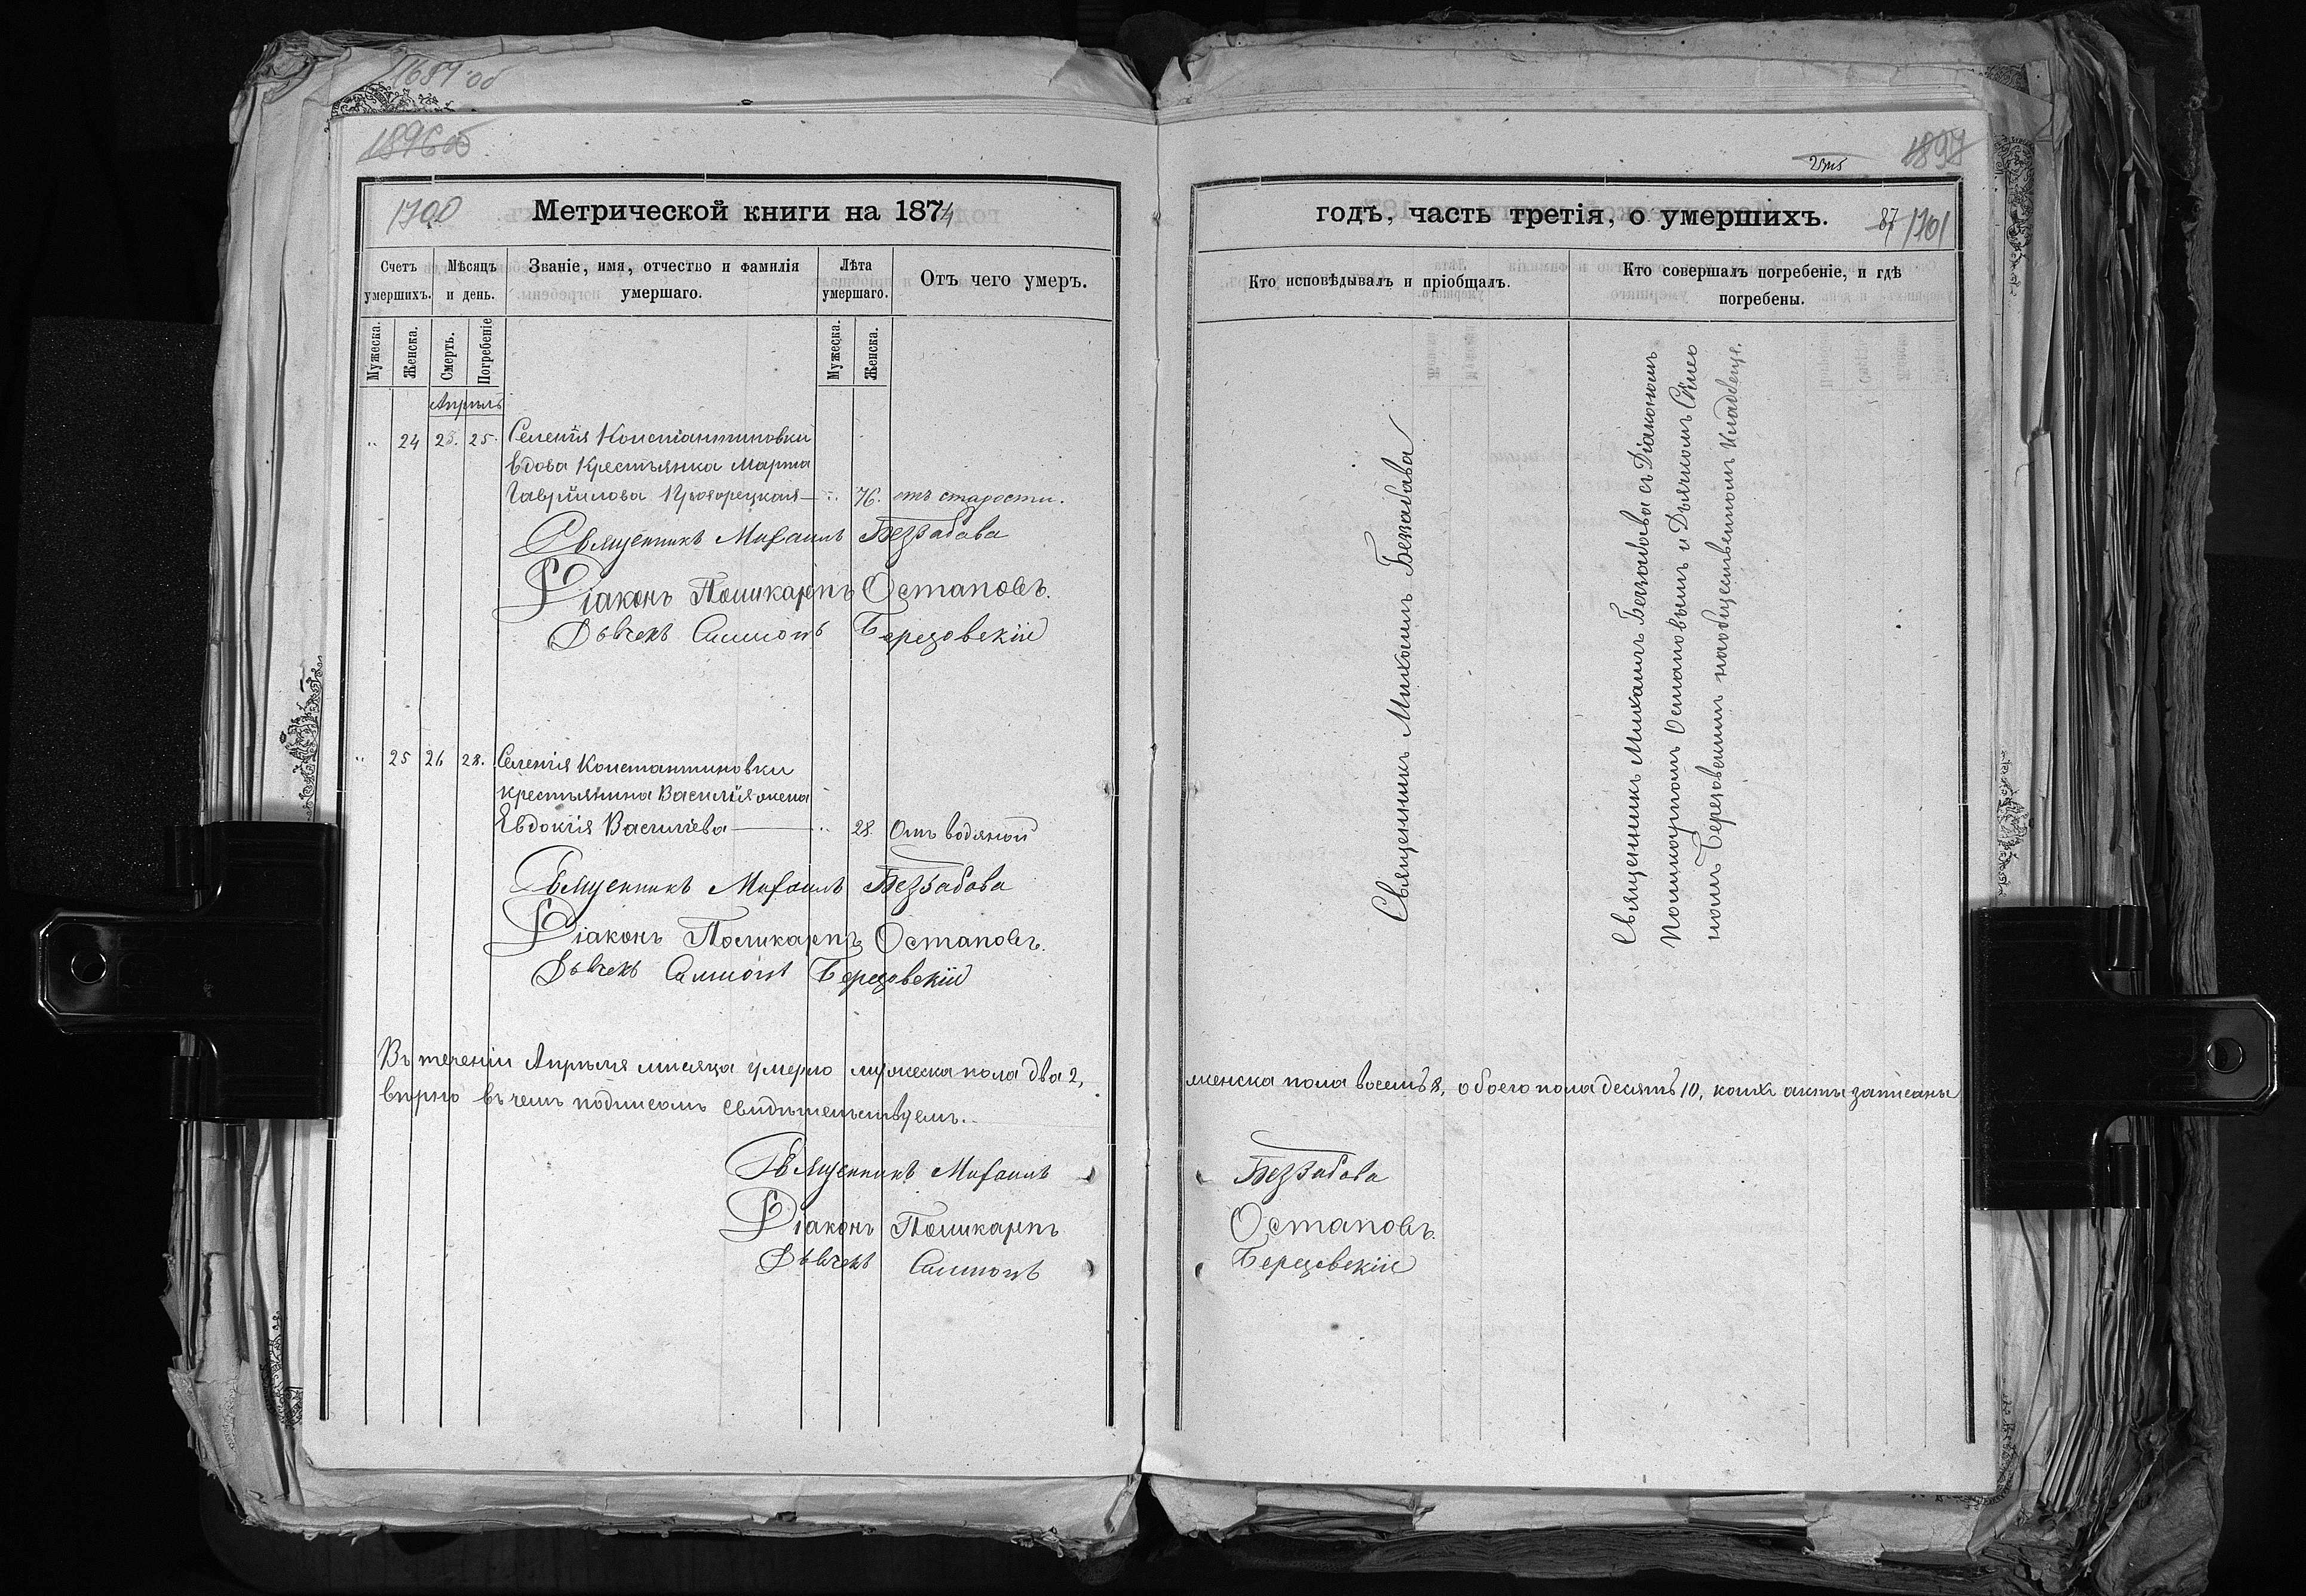 1687 об
1896 об
1700
Метрической книги на 1874
Счетъ умершихъ.
Мѣсяцъ и день.
Званіе, имя, отчество и фамилія умершаго.
Лѣта умершаго.
Отъ чего умеръ.
Мужеска.
Женска.
Смерть.
Погребеніе
Мужеска.
Женска.
Апрѣль
24 23. 25. Селенія Константиновки
вдова Крестьянка Марта
Гавріилова — 76. отъ старости.
Священникъ Михаилъ Беззабава
Діаконъ Поликарпъ Остаповъ.
Дьячекъ Симионъ Березовскій
25 26 28. Селенія Константиновки
крестьянина Василія жена
Евдокія Василіева — 28. Отъ водяной
Священникъ Михаилъ Беззабава
Діаконъ Поликарпъ Остаповъ.
Дьячекъ Симионъ Березовскій
Въ теченіи Апрѣля мѣсяца умерло мужеска пола два 2,
вѣрно въ чемъ подписомъ свидѣтельствуемъ.
Священникъ Михаилъ
Діаконъ Поликарпъ
Дьячекъ Симионъ
1897
годъ, часть третія, о умершихъ.
87 1701
Кто исповѣдывалъ и пріобщалъ.
Кто совершалъ погребеніе, и гдѣ погребены.
Священникъ Михаилъ Беззабава
Священникъ Михаилъ Беззабава съ Діакономъ
Поликарпомъ Остаповымъ и Дьячкомъ Симіо
номъ Березовскимъ на общественномъ кладбище.
женска пола восемь 8, обоего пола десять 10, коихъ акты записаны
Беззабава
Остаповъ.
Березовскій